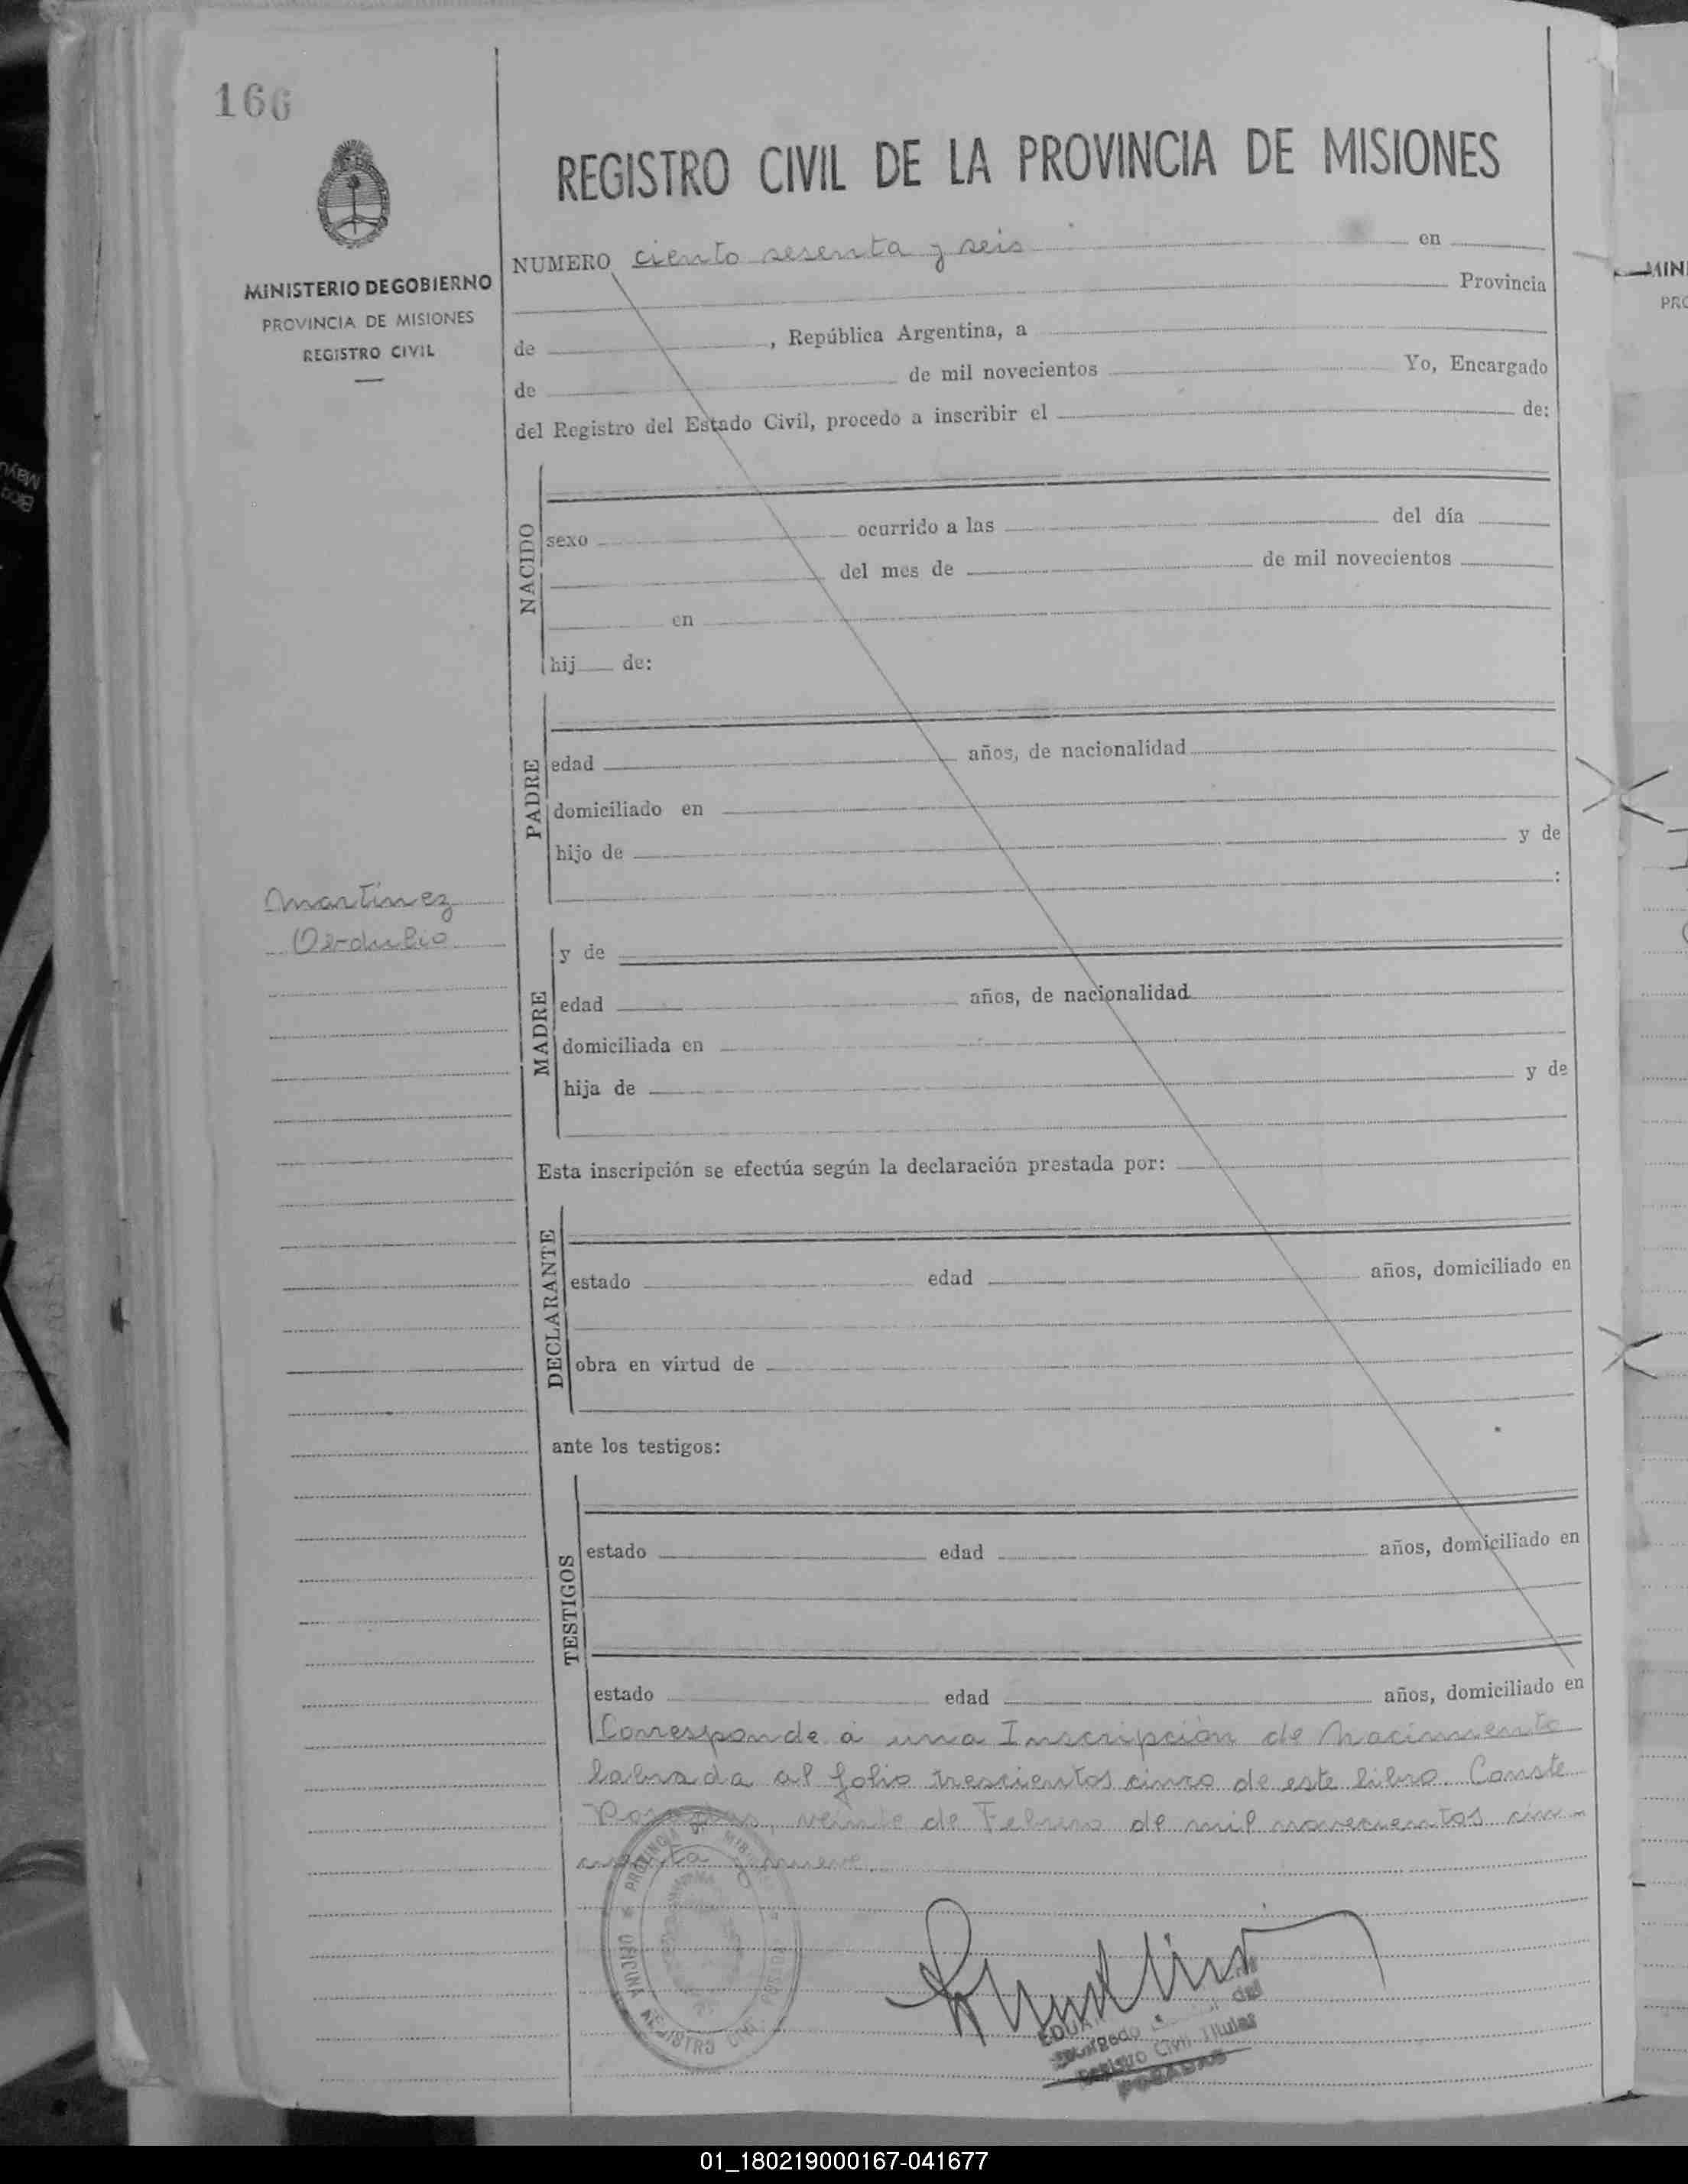 166
REGISTRO CIVIL DE LA PROVINCIA DE MISIONES
MINISTERIO DE GOBIERNO
PROVINCIA DE MISIONES
REGISTRO CIVIL
NUMERO ciento sesenta y seis en
Provincia
de , República Argentina, a
de de mil novecientos Yo, Encargado
del Registro del Estado Civil, procedo a inscribir el de:
NACIDO
sexo ocurrido a las del día
del mes de de mil novecientos
en
hij de:
PADRE
edad años, de nacionalidad
domiciliado en
hijo de y de
:
Martínez
MADRE
y de
edad años, de nacionalidad
domiciliada en
hija de y de
Esta inscripción se efectúa según la declaración prestada por:
DECLARANTE
estado edad años, domiciliado en
obra en virtud de
ante los testigos:
TESTIGOS
estado edad años, domiciliado en
estado edad años, domiciliado en
Corresponde a una Inscripción de Nacimiento
labrada al folio trescientos cinco de este libro. Conste
Posadas, veinte de Febrero de mil novecientos cin-
cuenta y nueve.
OFICINA REGISTRO CIVIL
Registro Civil Titular
POSADAS
MINI
PRO
01_180219000167-041677